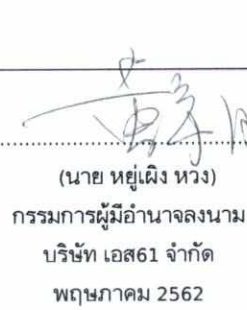 (นาย หยู่เผิง หวง)
กรรมการผู้มีอำนาจลงนาม
บริษัท เอส61 จำกัด
พฤษภาคม 2562